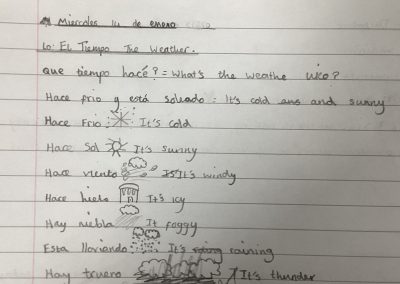 Miercoles 14 de enero
Lo: El Tiempo The Weather.
Que tiempo hacé? = What's the weathe
Hace frio y está Soleado: It's cold ans and sunny
Hace Frio: It's cold
Hace Sol It's sunny
Hace viento It's windy
Hace hielo It's icy
Hay niebla It foggy
Esta lloviendo It's raining
Hay truero It's thunder